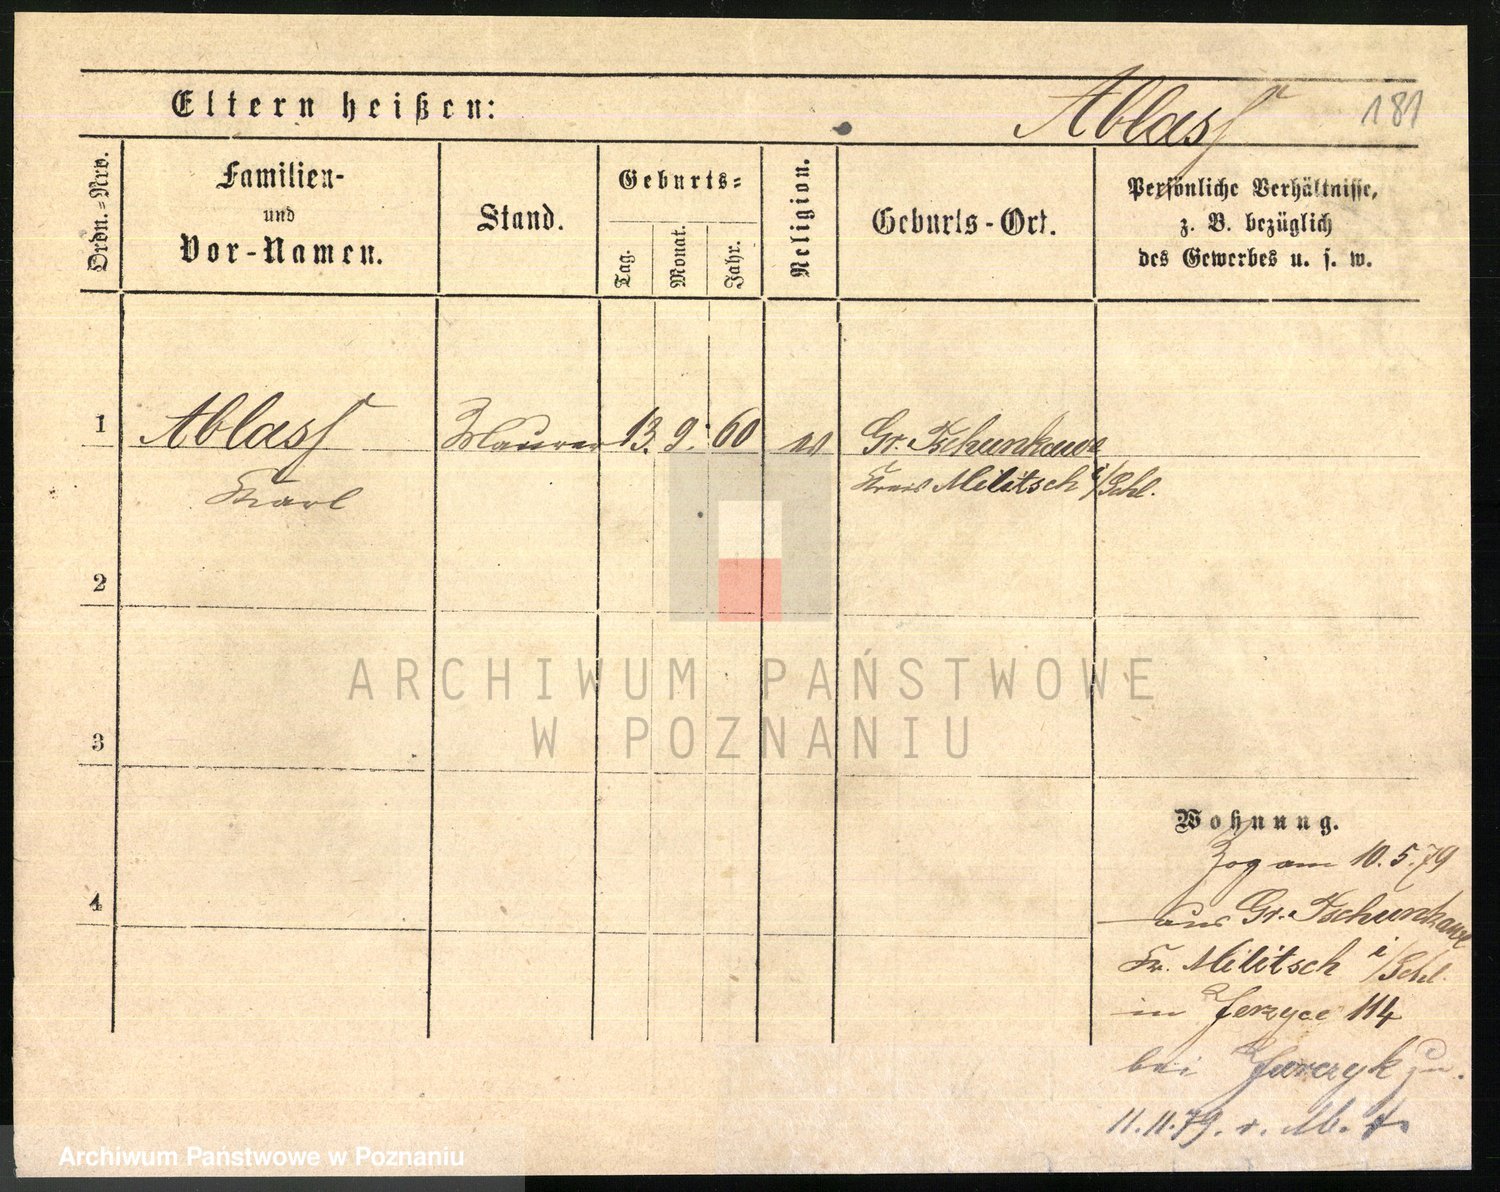 Eltern heißen:
Ablass
181
Ordn.-Nro.
Familien-
und
Vor-Namen.
Stand.
Geburts-
Tag.
Monat.
Jahr.
Religion.
Geburts-Ort.
Persönliche Verhältnisse,
z. B. bezüglich
des Gewerbes u. s. w.
1
Ablass
Maurer
13. 9. 60
ev
Gr. Tschunkawe
Karl
Kreis Militsch i/Schl.
2
3
4
ARCHIWUM PAŃSTWOWE
W POZNANIU
Wohnung.
Zog am 10.5.79
aus Gr. Tschunkawe
Kr. Militsch i/Schl.
in Jerzyce 114
bei Jarczyk zu.
11.11.79. v.
Archiwum Państwowe w Poznaniu